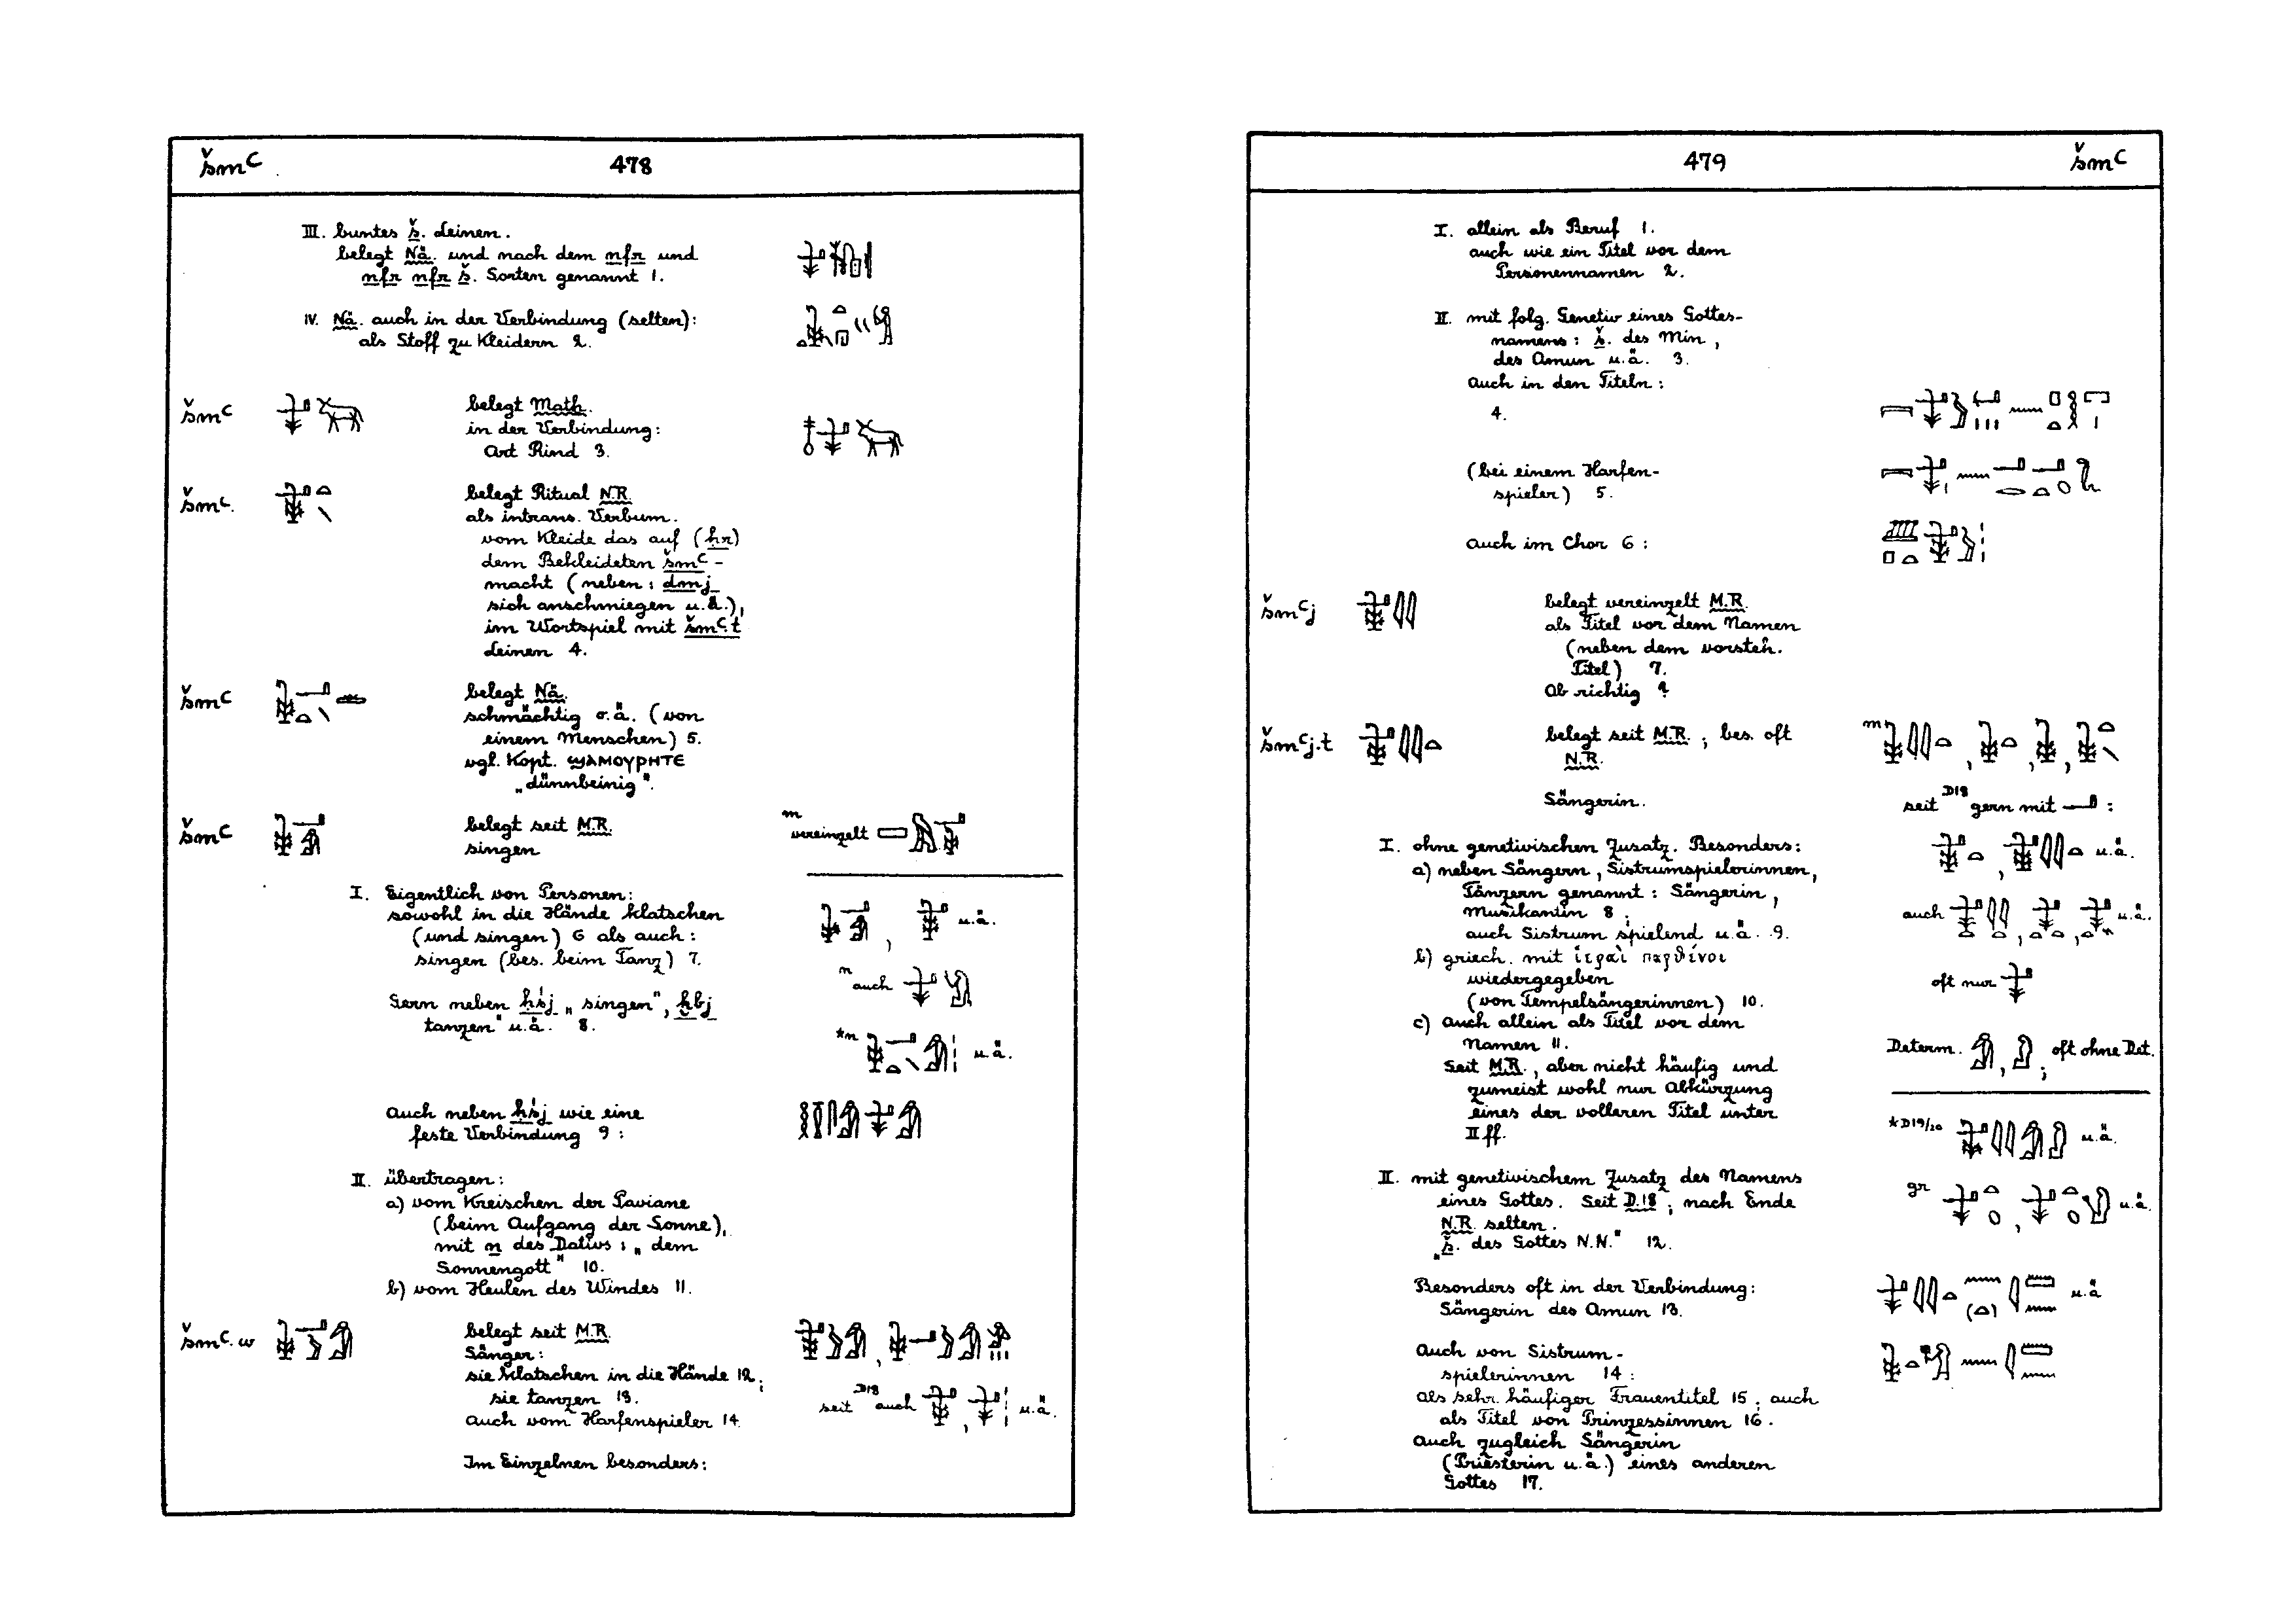 šmꜥ 478
III. buntes š. Leinen.
belegt Nä. und nach dem nfr und
nfr nfr š. Sorten genannt 1.
IV. Nä. auch in der Verbindung (selten):
als Stoff zu Kleidern 2.
šmꜥ belegt Math.
in der Verbindung:
Art Rind 3.
šmꜥ. belegt Ritual N.R.
als intrans. Verbum.
vom Kleide das auf (ḥr)
dem Bekleideten šmꜥ-
macht (neben: dmj
sich anschmiegen u.ä.),
im Wortspiel mit šmꜥ.t
Leinen 4.
šmꜥ belegt Nä.
schmächtig o.ä. (von
einem Menschen) 5.
vgl. Kopt. ϣⲁⲙⲟⲩⲣⲏⲧⲉ
„dünnbeinig".
šmꜥ belegt seit M.R.
singen
m
vereinzelt
I. Eigentlich von Personen:
sowohl in die Hände klatschen
(und singen) 6 als auch:
singen (bes. beim Tanz) 7.
, u.ä.
n auch
Gern neben ḥśj „singen", ḫbj
tanzen" u.ä. 8.
*n u.ä.
Auch neben ḥśj wie eine
feste Verbindung 9:
II. übertragen:
a) vom Kreischen der Paviane
(beim Aufgang der Sonne),
mit n des Dativs: „dem
Sonnengott" 10.
b) vom Heulen des Windes 11.
šmꜥ.w belegt seit M.R.
Sänger:
sie klatschen in die Hände 12;
sie tanzen 13.
auch vom Harfenspieler 14.
seit D18 auch , u.ä.
Im Einzelnen besonders:
479 šmꜥ
I. allein als Beruf 1.
auch wie ein Titel vor dem
Personennamen 2.
II. mit folg. Genetiv eines Gottes-
namens: š. des Min,
des Amun u.ä. 3.
Auch in den Titeln:
4.
(bei einem Harfen-
spieler) 5.
auch im Chor 6:
šmꜥj belegt vereinzelt M.R.
als Titel vor dem Namen
(neben dem vorsteh.
Titel) 7.
Ob richtig?
šmꜥj.t belegt seit M.R.; bes. oft
N.R.
m , , ,
Sängerin.
seit D18 gern mit :
I. ohne genetivischen Zusatz. Besonders:
a) neben Sängern, Sistrumspielerinnen,
Tänzern genannt: Sängerin,
Musikantin 8;
auch Sistrum spielend u.ä. 9.
b) griech. mit ἱεραὶ παρθένοι
wiedergegeben
(von Tempelsängerinnen) 10.
c) Auch allein als Titel vor dem
Namen 11.
Seit M.R., aber nicht häufig und
zumeist wohl nur Abkürzung
eines der volleren Titel unter
II ff.
, u.ä.
auch , , u.ä.
oft nur
Determ. , ; oft ohne Det.
*D19/20 u.ä.
II. mit genetivischem Zusatz des Namens
eines Gottes. Seit D.18; nach Ende
N.R. selten.
„š. des Gottes N.N." 12.
gr , u.ä.
Besonders oft in der Verbindung:
Sängerin des Amun 13.
u.ä
Auch von Sistrum-
spielerinnen 14:
als sehr häufiger Frauentitel 15; auch
als Titel von Prinzessinnen 16.
Auch zugleich Sängerin
(Priesterin u.ä.) eines anderen
Gottes 17.